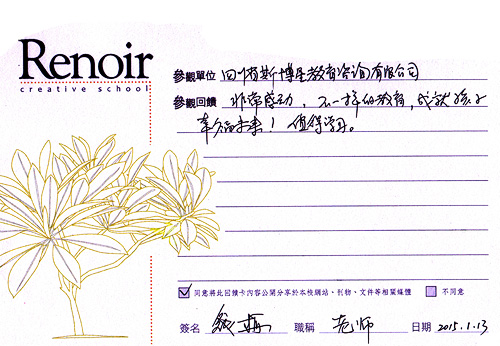 Renoir
creative school
參觀單位 斯博教育咨询有限公司
參觀回饋 非常感动,不一样的教育,成就孩子
幸福未来!值得学习。
同意將此回饋卡內容公開分享於本校網站、刊物、文件等相關媒體 不同意
簽名 職稱 老师 日期 2015.1.13